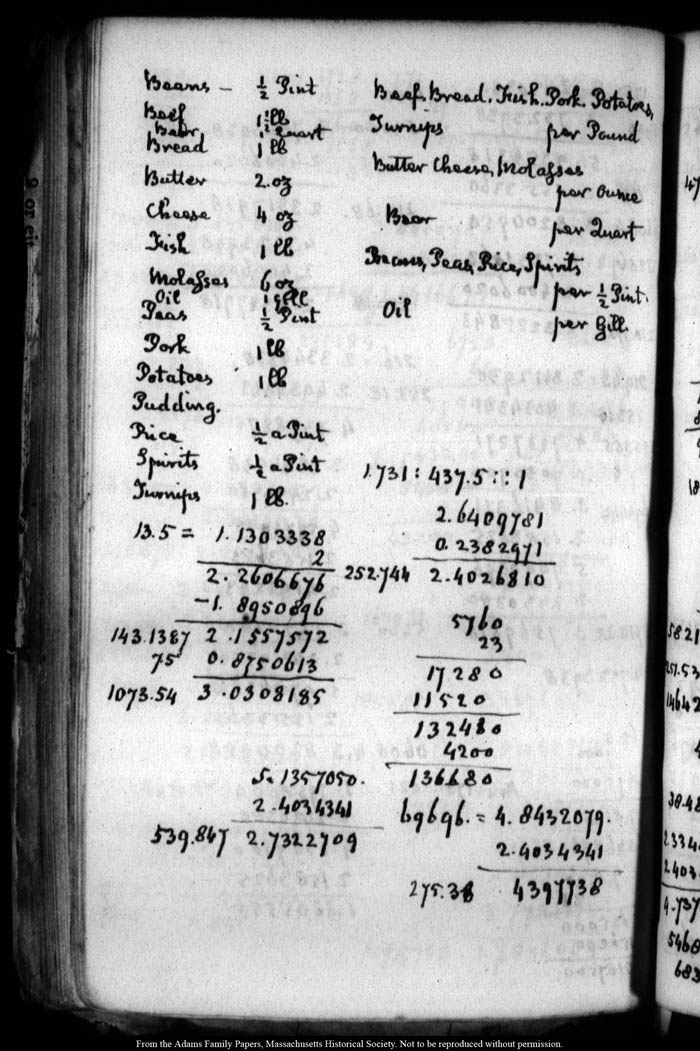 Beans — ½ Pint
Beef 1 lb
Beer 1 Quart
Bread 1 lb
Butter 2. oz
Cheese 4 oz
Fish 1 lb
Molasses 6 oz
Oil 1 gill
Peas ½ Pint
Pork 1 lb
Potatoes 1 lb
Pudding.
Rice ½ a Pint
Spirits ½ a Pint
Turnips 1 lb.
13.5 = 1.1303338
2
2.2606676
–1.8950896
143.1387 2.1557572
75 0.8750613
1073.54 3.0308185
5.1357050.
2.4034341
539.847 2.7322709
Beef, Bread, Fish, Pork, Potatoes,
Turnips per Pound
Butter Cheese, Molasses
per Ounce
Beer per Quart
Beans, Peas, Rice, Spirits
per ½ Pint.
Oil per Gill.
1.731 : 437.5 :: 1
2.6409781
0.2382971
252.744 2.4026810
5760
23
17280
11520
132480
4200
136680
69696. = 4.8432079.
2.4034341
275.38 4397738
47
5821
14642
38.48
2334
2403
4.737
5468
683
From the Adams Family Papers, Massachusetts Historical Society. Not to be reproduced without permission.